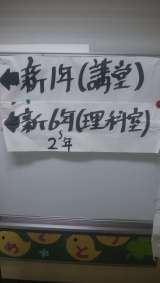 ←新1年(講堂)
←新6年(理科室)
〜
2年
めと